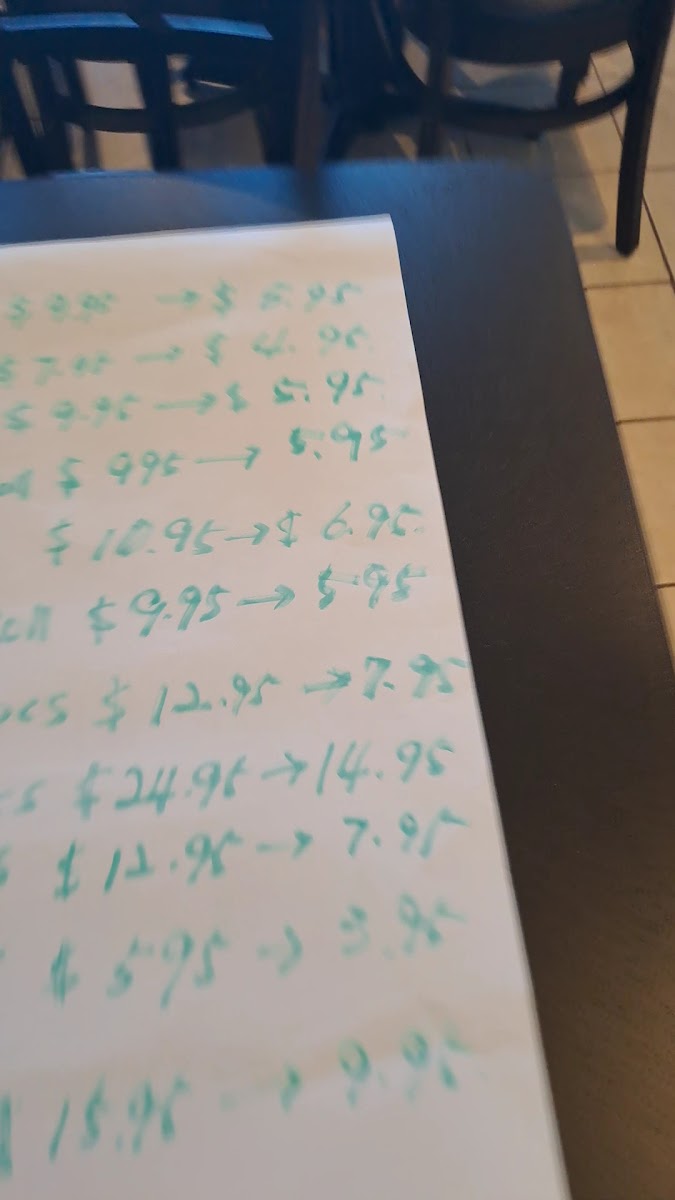 $ 9.95 → $ 5.95
$ 7.95 → $ 4.95
$ 9.95 → $ 5.95
$ 995 → 5.95
$ 10.95 → $ 6.95
$ 9.95 → 5.95
$ 12.95 → 7.95
$ 24.95 → 14.95
$ 12.95 → 7.95
$ 595 → 3.95
15.95 → 9.95